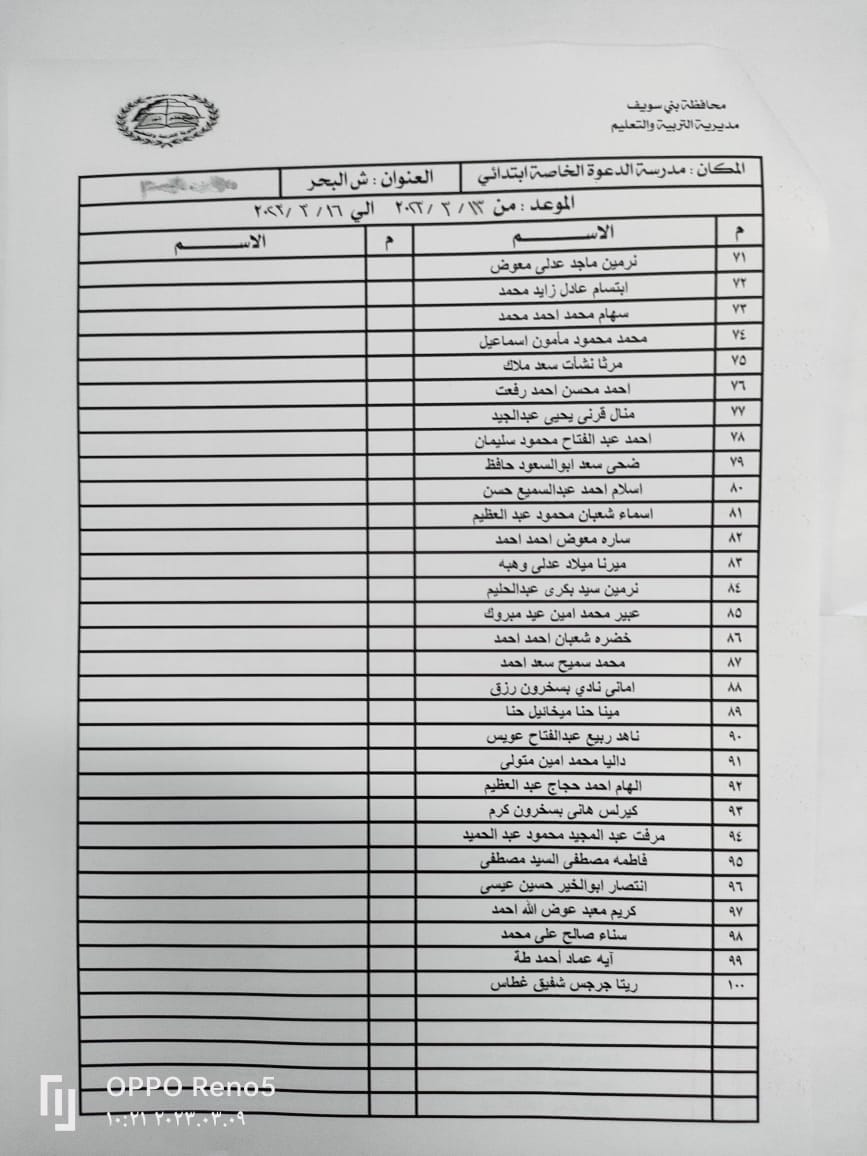 محافظة بني سويف
مديرية التربية والتعليم
المكان : مدرسة الدعوة الخاصة ابتدائي العنوان : ش البحر
الموعد : من ١٣ / ٣ / ٢٠٢٣ الي ١٦ / ٣ / ٢٠٢٣
م الاســـــم م الاســـم
٧١ نرمين ماجد عدلى معوض
٧٢ ابتسام عادل زايد محمد
٧٣ سهام محمد احمد محمد
٧٤ محمد محمود مأمون اسماعيل
٧٥ مرثا نشأت سعد ملاك
٧٦ احمد محسن احمد رفعت
٧٧ منال قرنى يحيى عبدالجيد
٧٨ احمد عبد الفتاح محمود سليمان
٧٩ ضحى سعد ابوالسعود حافظ
٨٠ اسلام احمد عبدالسميع حسن
٨١ اسماء شعبان محمود عبد العظيم
٨٢ ساره معوض احمد احمد
٨٣ ميرنا ميلاد عدلى وهبه
٨٤ نرمين سيد بكرى عبدالحليم
٨٥ عبير محمد امين عيد مبروك
٨٦ خضره شعبان احمد احمد
٨٧ محمد سميح سعد احمد
٨٨ امانى نادي بسخرون رزق
٨٩ مينا حنا ميخائيل حنا
٩٠ ناهد ربيع عبدالفتاح عويس
٩١ داليا محمد امين متولى
٩٢ الهام احمد حجاج عبد العظيم
٩٣ كيرلس هانى بسخرون كرم
٩٤ مرفت عبد المجيد محمود عبد الحميد
٩٥ فاطمه مصطفى السيد مصطفى
٩٦ انتصار ابوالخير حسين عيسى
٩٧ كريم معبد عوض الله احمد
٩٨ سناء صالح على محمد
٩٩ آيه عماد أحمد طة
١٠٠ ريتا جرجس شفيق غطاس
OPPO Reno5
١٠:٢١ ٢٠٢٣.٠٣.٠٩